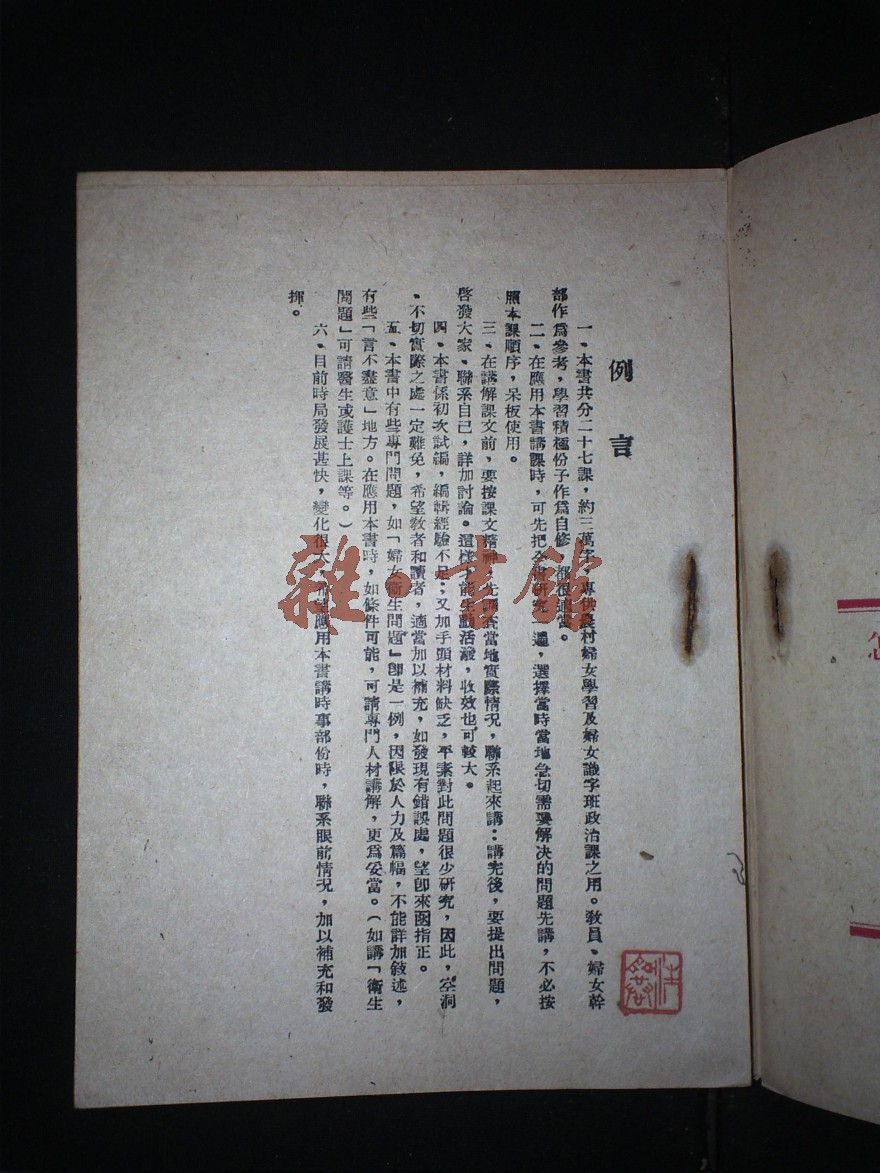 例言
一、本書共分二十七課，約三萬字，專供農村婦女學習及婦女識字班政治課之用。敎員、婦女幹
部作爲參考，學習積極份子作爲自修，都很適當。
二、在應用本書講課時，可先把全書研究一遍，選擇當時當地急切需要解决的問題先講，不必按
照本課順序，呆板使用。
三、在講解課文前，要按課文精神，先調查當地實際情况，聯系起來講：講完後，要提出問題，
啓發大家、聯系自己，詳加討論。這樣，能生動活潑，收效也可較大。
四、本書係初次試編，編輯經驗不足；又加手頭材料缺乏，平素對此問題很少研究，因此，空洞
、不切實際之處一定難免，希望敎者和讀者，適當加以補充，如發現有錯誤處，望卽來函指正。
五、本書中有些專門問題，如「婦女衞生問題」卽是一例，因限於人力及篇幅，不能詳加敍述，
有些「言不盡意」地方。在應用本書時，如條件可能，可請專門人材講解，更爲妥當。（如講「衞生
問題」可請醫生或護士上課等。）
六、目前時局發展甚快，變化很大，希望應用本書講時事部份時，聯系眼前情况，加以補充和發
揮。
雜·書館